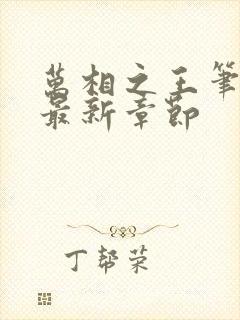 萬相之王筆
最新章節
丁帮荣